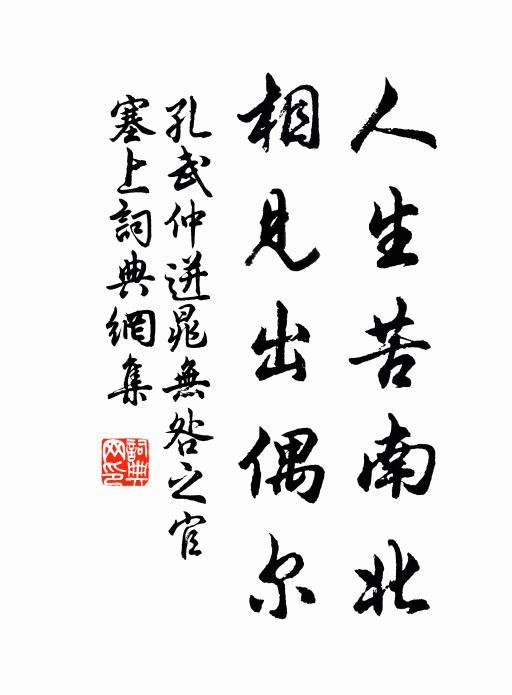 人生苦南北
相見出偶尔
孔武仲迸晁無咎之官
塞上詞典網集
詞典网印